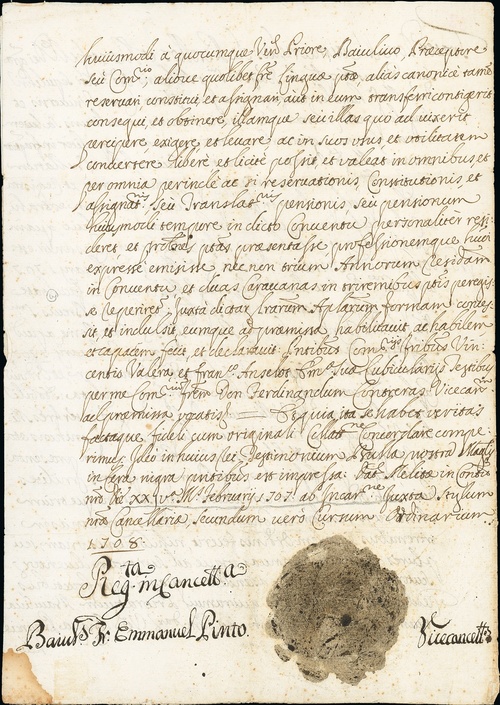 huiusmodi à quocumque Vīn Priore, Baiulivo, Præceptore
seu Comrio; aliove quolibet fre Lingua ptæ, alias canonicè tamē
reservari, constitui, et assignari, aut in eum transferri contigerit
consequi, et obtinere, illamque seu illas quo ad vixerit
percipere, exigere, et levare ac in suos usus, et utilitatem
convertere liberè et licitè possit, et valeat in omnibus, et
per omnia perindè ac si reservationis, Constitutionis, et
assignatnis, seu Translatnis pensionis, seu pensionum
huiusmodi tempore in dicto Conventu personalitèr resi:
deret et ptas præsentasse professionemque
expressè emisisse nec non trium Annorum Residam
in Conventu et duas Caravanas in triremibus ptis peregis:
se reperiret. Juxtà dictar. lrarum Aplarum formam conces:
sit, et indulsit, eumque ad præmissa habilitavit, ac habilem
et capacem fecit, et declaravit. Pntibus fribus Vin:
centio Valera, et Franco. Anselot Suæ Cubiculariis Testibus
per me frem Don Ferdinandum Contreras Vicecanrm
ad premissa vocatis = Et quia ita se habet veritas
factaque fideli cum originali Collatne Concordare compe:
rimus; Ideo in huius rei testimonium Bulla nostra
in cera nigra pntibus est impressa. Dat. Melitæ in Contu
nro die XXIV Ms. Februarij 1707. ab Incarne Juxta stylum
nræ Cancellariæ secundum verò Cursum Ordinarium
1708.
Regta in Cancellta
Baiulīs Fr. Emmanuel Pinto. Vicecancells